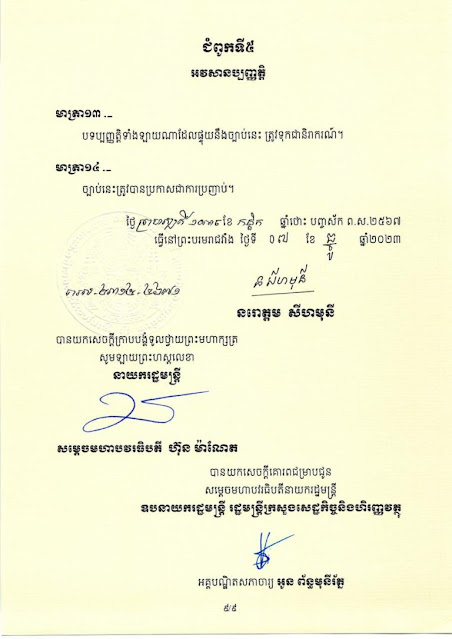 ជំពូកទី៥
អវសានប្បញ្ញត្តិ
មាត្រា១៣ .__
បទប្បញ្ញត្តិទាំងឡាយណាដែលផ្ទុយនឹងច្បាប់នេះ ត្រូវទុកជានិរាករណ៍។
មាត្រា១៤ .__
ច្បាប់នេះត្រូវបានប្រកាសជាការប្រញាប់។
ថ្ងៃ ខែ កត្តិក ឆ្នាំថោះ បញ្ចស័ក ព.ស.២៥៦៧
ធ្វើនៅព្រះបរមរាជវាំង ថ្ងៃទី ០៧ ខែ ធ្នូ ឆ្នាំ២០២៣
នរោត្តម សីហមុនី
បានយកសេចក្តីក្រាបបង្គំទូលថ្វាយព្រះមហាក្សត្រ
សូមឡាយព្រះហស្តលេខា
នាយករដ្ឋមន្ត្រី
សម្តេចមហាបវរធិបតី ហ៊ុន ម៉ាណែត
បានយកសេចក្តីគោរពជម្រាបជូន
សម្តេចមហាបវរធិបតីនាយករដ្ឋមន្ត្រី
ឧបនាយករដ្ឋមន្ត្រី រដ្ឋមន្ត្រីក្រសួងសេដ្ឋកិច្ចនិងហិរញ្ញវត្ថុ
អគ្គបណ្ឌិតសភាចារ្យ អូន ព័ន្ធមុនីរ័ត្ន
៩/៩